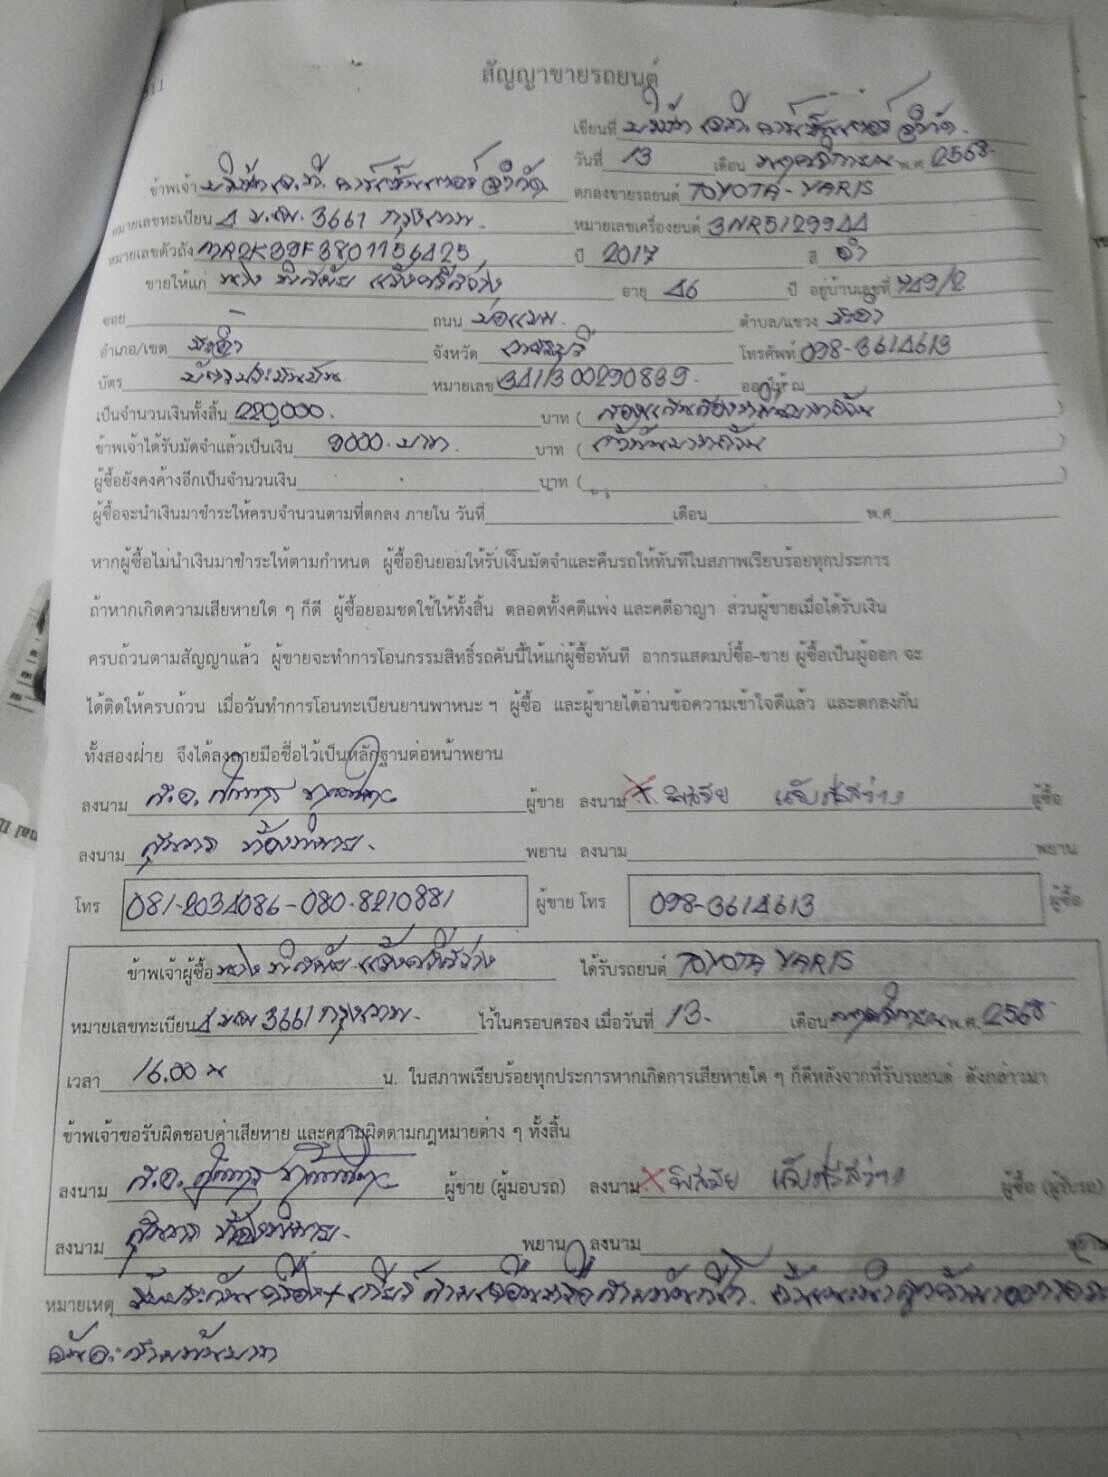 สัญญาขายรถยนต์
เขียนที่ บริษัท เอ.ที. คาร์เซ็นเตอร์ จำกัด
วันที่ 13 เดือน พฤศจิกายน พ.ศ 2568
ข้าพเจ้า บริษัท เอ.ที. คาร์เซ็นเตอร์ จำกัด ตกลงขายรถยนต์ TOYOTA-YARIS
หมายเลขทะเบียน 3661 กรุงเทพ. หมายเลขเครื่องยนต์ 3NR5129944
หมายเลขตัวถัง MR2K39F3801156425 ปี 2017 สี ดำ
ขายให้แก่ นาง พิสมัย อายุ 46 ปี อยู่บ้านเลขที่ 749/2
ซอย - ถนน ตำบล/แขวง
อำเภอ/เขต จังหวัด โทรศัพท์ 098-3614613
บัตร บัตรประชาชน หมายเลข 3411300290839. ออกให้ ณ
เป็นจำนวนเงินทั้งสิ้น 220,000. บาท ( สองแสนสองหมื่นบาทถ้วน
ข้าพเจ้าได้รับมัดจำแล้วเป็นเงิน 9000.บาท. บาท ( เก้าพันบาทถ้วน )
ผู้ซื้อยังคงค้างอีกเป็นจำนวนเงิน บาท ( )
ผู้ซื้อจะนำเงินมาชำระให้ครบจำนวนตามที่ตกลง ภายใน วันที่ เดือน พ.ศ
หากผู้ซื้อไม่นำเงินมาชำระให้ตามกำหนด ผู้ซื้อยินยอมให้ริบเงินมัดจำและคืนรถให้ทันทีในสภาพเรียบร้อยทุกประการ
ถ้าหากเกิดความเสียหายใด ๆ ก็ดี ผู้ซื้อยอมชดใช้ให้ทั้งสิ้น ตลอดทั้งคดีแพ่ง และคดีอาญา ส่วนผู้ขายเมื่อได้รับเงิน
ครบถ้วนตามสัญญาแล้ว ผู้ขายจะทำการโอนกรรมสิทธิ์รถคันนี้ให้แก่ผู้ซื้อทันที อากรแสตมป์ซื้อ-ขาย ผู้ซื้อเป็นผู้ออก จะ
ได้ติดให้ครบถ้วน เมื่อวันทำการโอนทะเบียนยานพาหนะ ฯ ผู้ซื้อ และผู้ขายได้อ่านข้อความเข้าใจดีแล้ว และตกลงกัน
ทั้งสองฝ่าย จึงได้ลงลายมือชื่อไว้เป็นหลักฐานต่อหน้าพยาน
ลงนาม ผู้ขาย ลงนาม พิสมัย ผู้ซื้อ
ลงนาม พยาน ลงนาม พยาน
โทร 081-2034086-080-8210881 ผู้ขาย โทร 098-3614613 ผู้ซื้อ
ข้าพเจ้าผู้ซื้อ นาง พิสมัย ได้รับรถยนต์ TOYOTA YARIS
หมายเลขทะเบียน 3661 กรุงเทพ. ไว้ในครอบครอง เมื่อวันที่ 13. เดือน พฤศจิกายน พ.ศ. 2568
เวลา 16.00 น น. ในสภาพเรียบร้อยทุกประการหากเกิดการเสียหายใด ๆ ก็ดีหลังจากที่รับรถยนต์ ดังกล่าวมา
ข้าพเจ้าขอรับผิดชอบค่าเสียหาย และความผิดตามกฎหมายต่าง ๆ ทั้งสิ้น
ลงนาม ผู้ขาย (ผู้มอบรถ) ลงนาม พิสมัย ผู้ซื้อ (ผู้รับรถ)
ลงนาม พยาน ลงนาม พยาน
หมายเหตุ รับประกันเครื่อง+เกียร์ สามเดือนหรือสามพันกิโล.
สามพันบาท